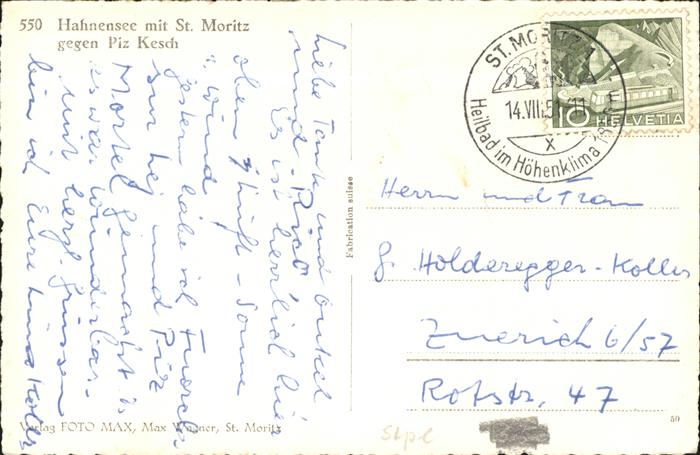 550 Hahnensee mit St. Moritz
gegen Piz Kesch
Liebe Tante und Onkel
und Rico,
Es ist herrlich hier
oben, Luft – Sonne
u. Wind.
gestern habe ich Fuorcla
Surlej und Piz
Mortel gemacht
es war wunderbar.
Mit herzl. Grüssen
bin ich Eure
Koller
Verlag FOTO MAX, Max Wagner, St. Moritz
Fabrication suisse
ST. MORITZ 1
14.VII.51-11
X
Heilbad im Höhenklima
10 HELVETIA
Herrn und Frau
G. Holderegger-Koller
Zuerich 6/57
Rotstr. 47
50
Stpl